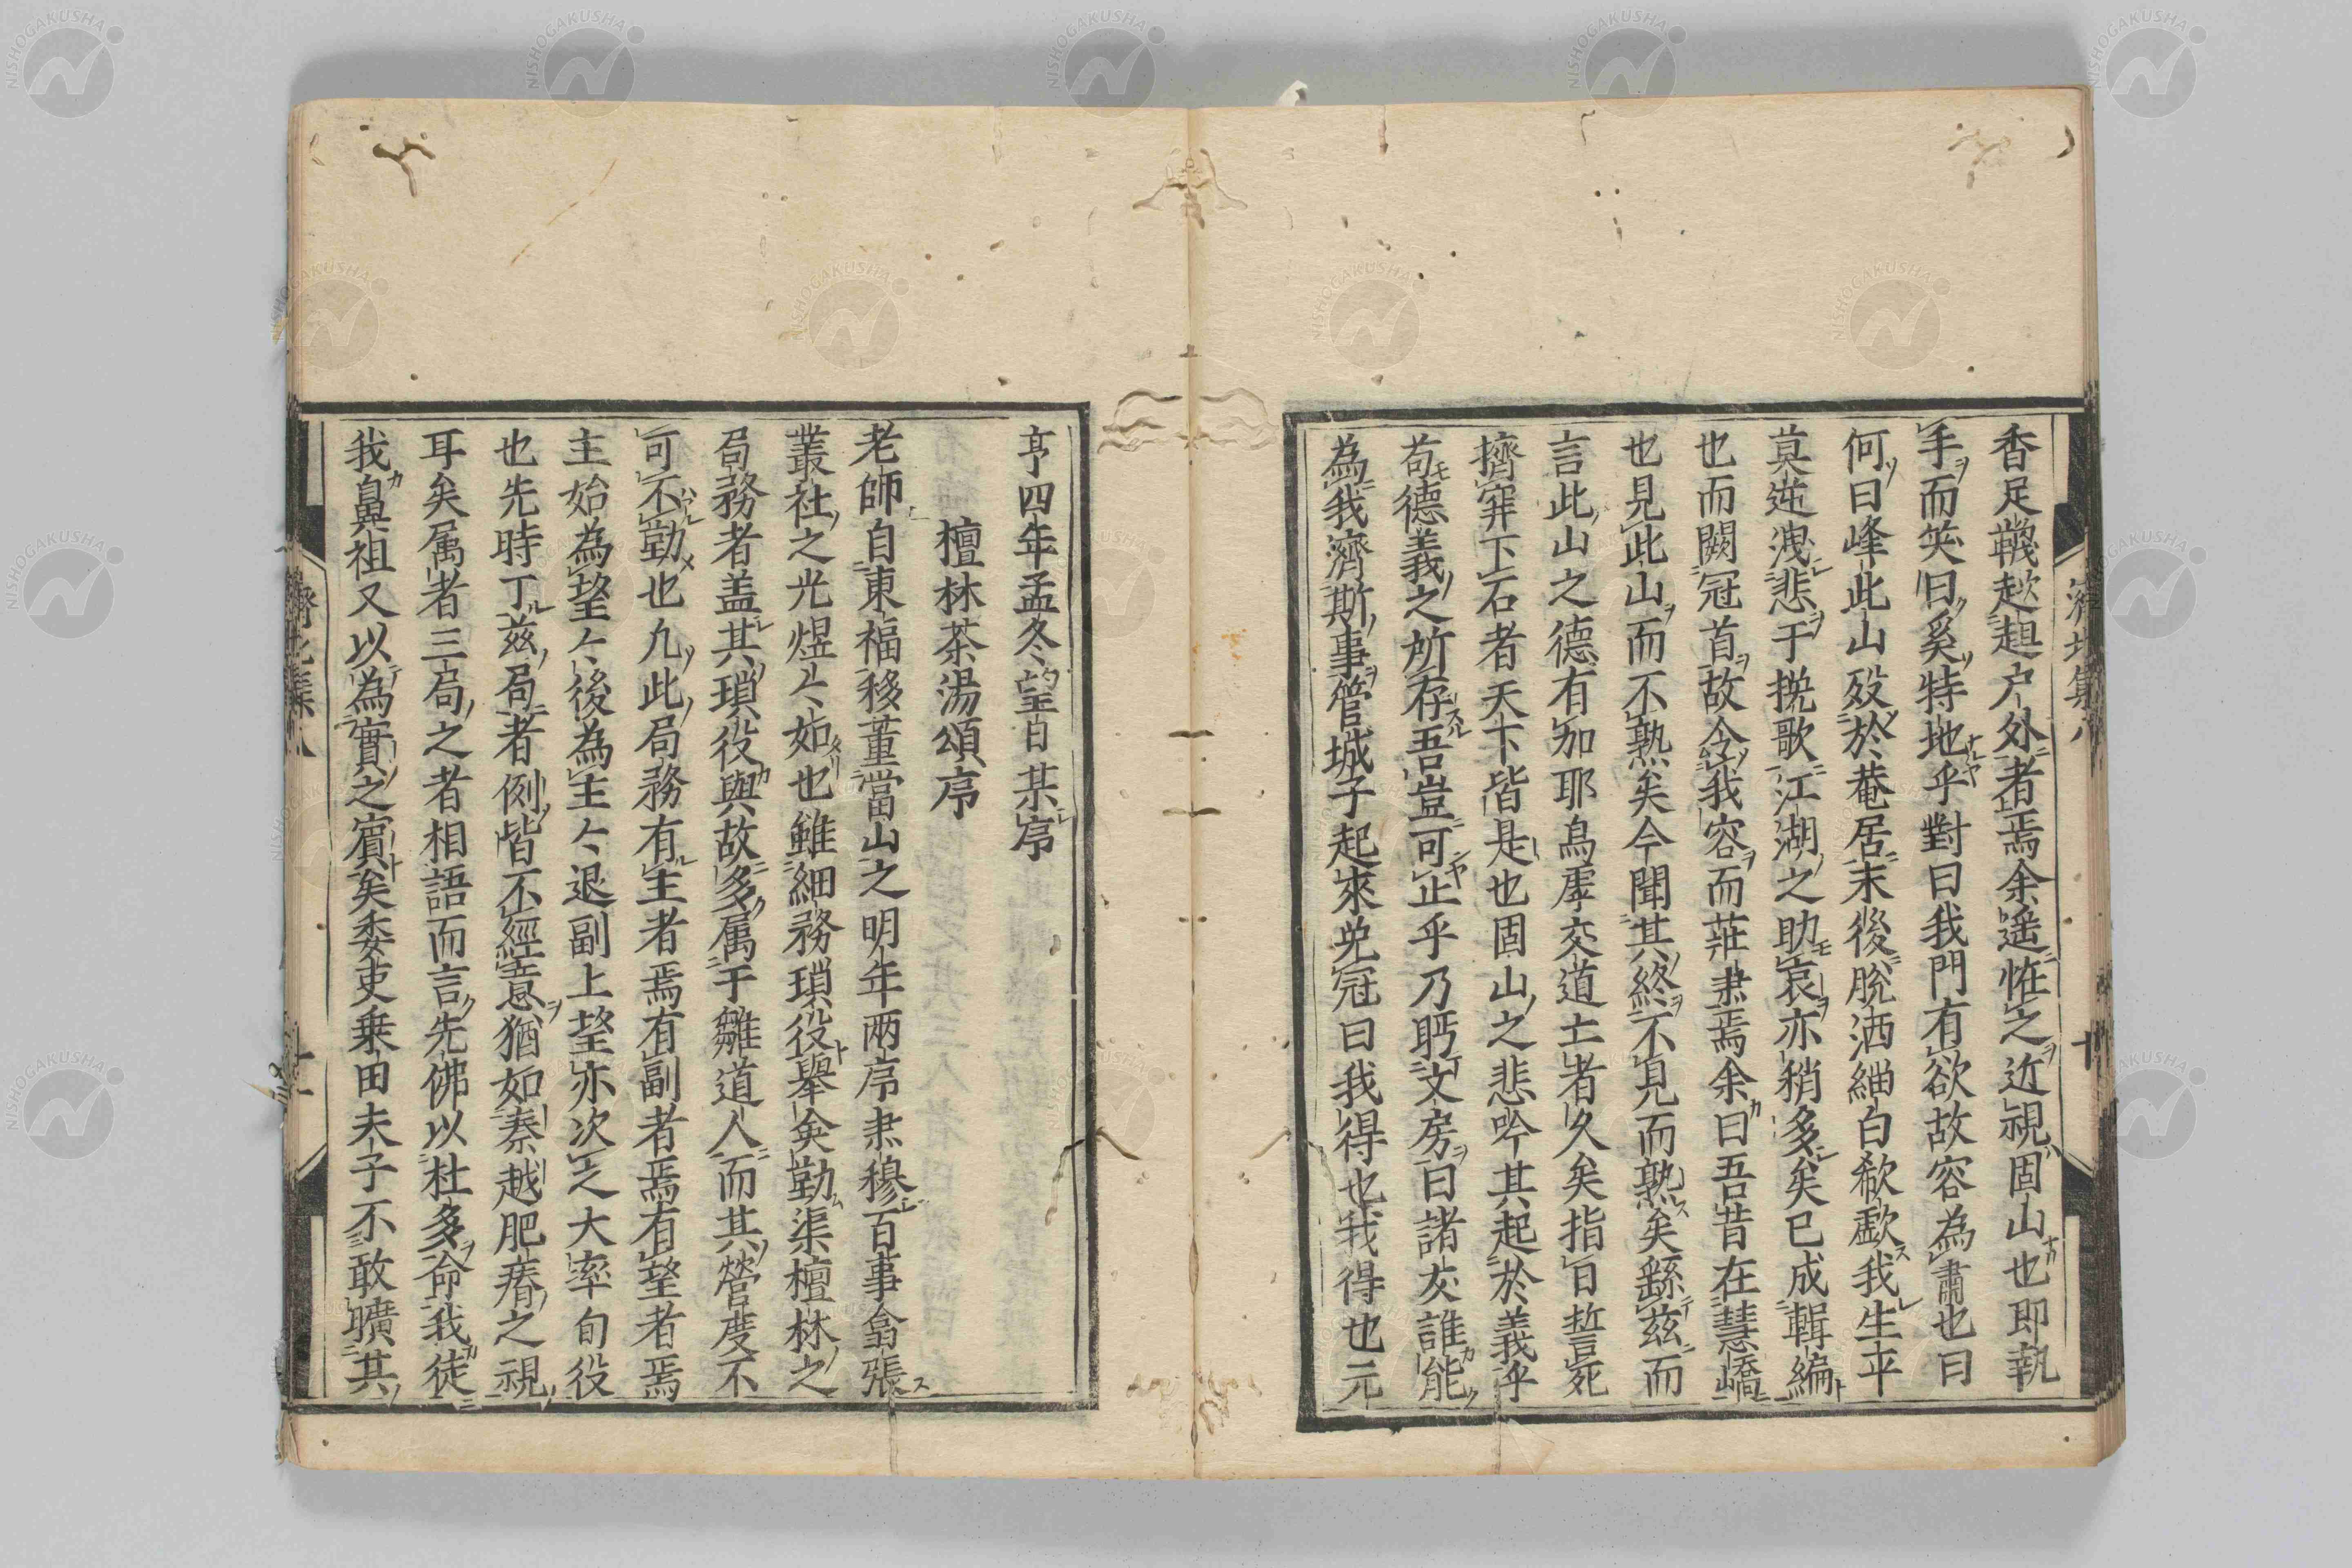 香足韈趑趄户外者焉余遥恠之近視固山也即執
手而笑曰奚特地乎對曰我門有欲故容為肅也曰
何曰峰此山殁於菴居末後脫洒緇白欷歔我生平
莫逆洩悲于挽歌江湖之助哀亦稍多矣已成輯編
也而闕冠首故令我容而莊肅焉余曰吾昔在慧嶠
也見此山而不熟矣今聞其終不見而熟矣繇茲而
言此山之德有加耶烏虖交道土者久矣指日誓死
擠穽下石者天下皆是也固山之悲吟其起於義乎
苟德義之所存吾豈可止乎乃眄文房曰諸友誰能
為我濟斯事管城子起來免冠曰我得也我得也元
亨四年孟冬望日某序
檀林茶湯頌序
老師自東福移董當山之明年兩序肅穆百事翕張
叢社之光煜々如也雖細務瑣役舉矣勤渠檀林之
局務者盖其瑣役與故多属于雛道人而其營度不
可不勤也凢此局務有主者焉有副者焉有望者焉
主始為望々後為主々退副上望亦次之大率旬役
也先時丁茲局者例皆不經意猶如秦越肥瘠之視
耳矣属者三局之者相語而言先佛以杜多命我徒
我鼻祖又以為實之賓矣委吏乗田夫子不敢曠其
濟北集八
十
濟北集八
十一
NISHOGAKUSHA